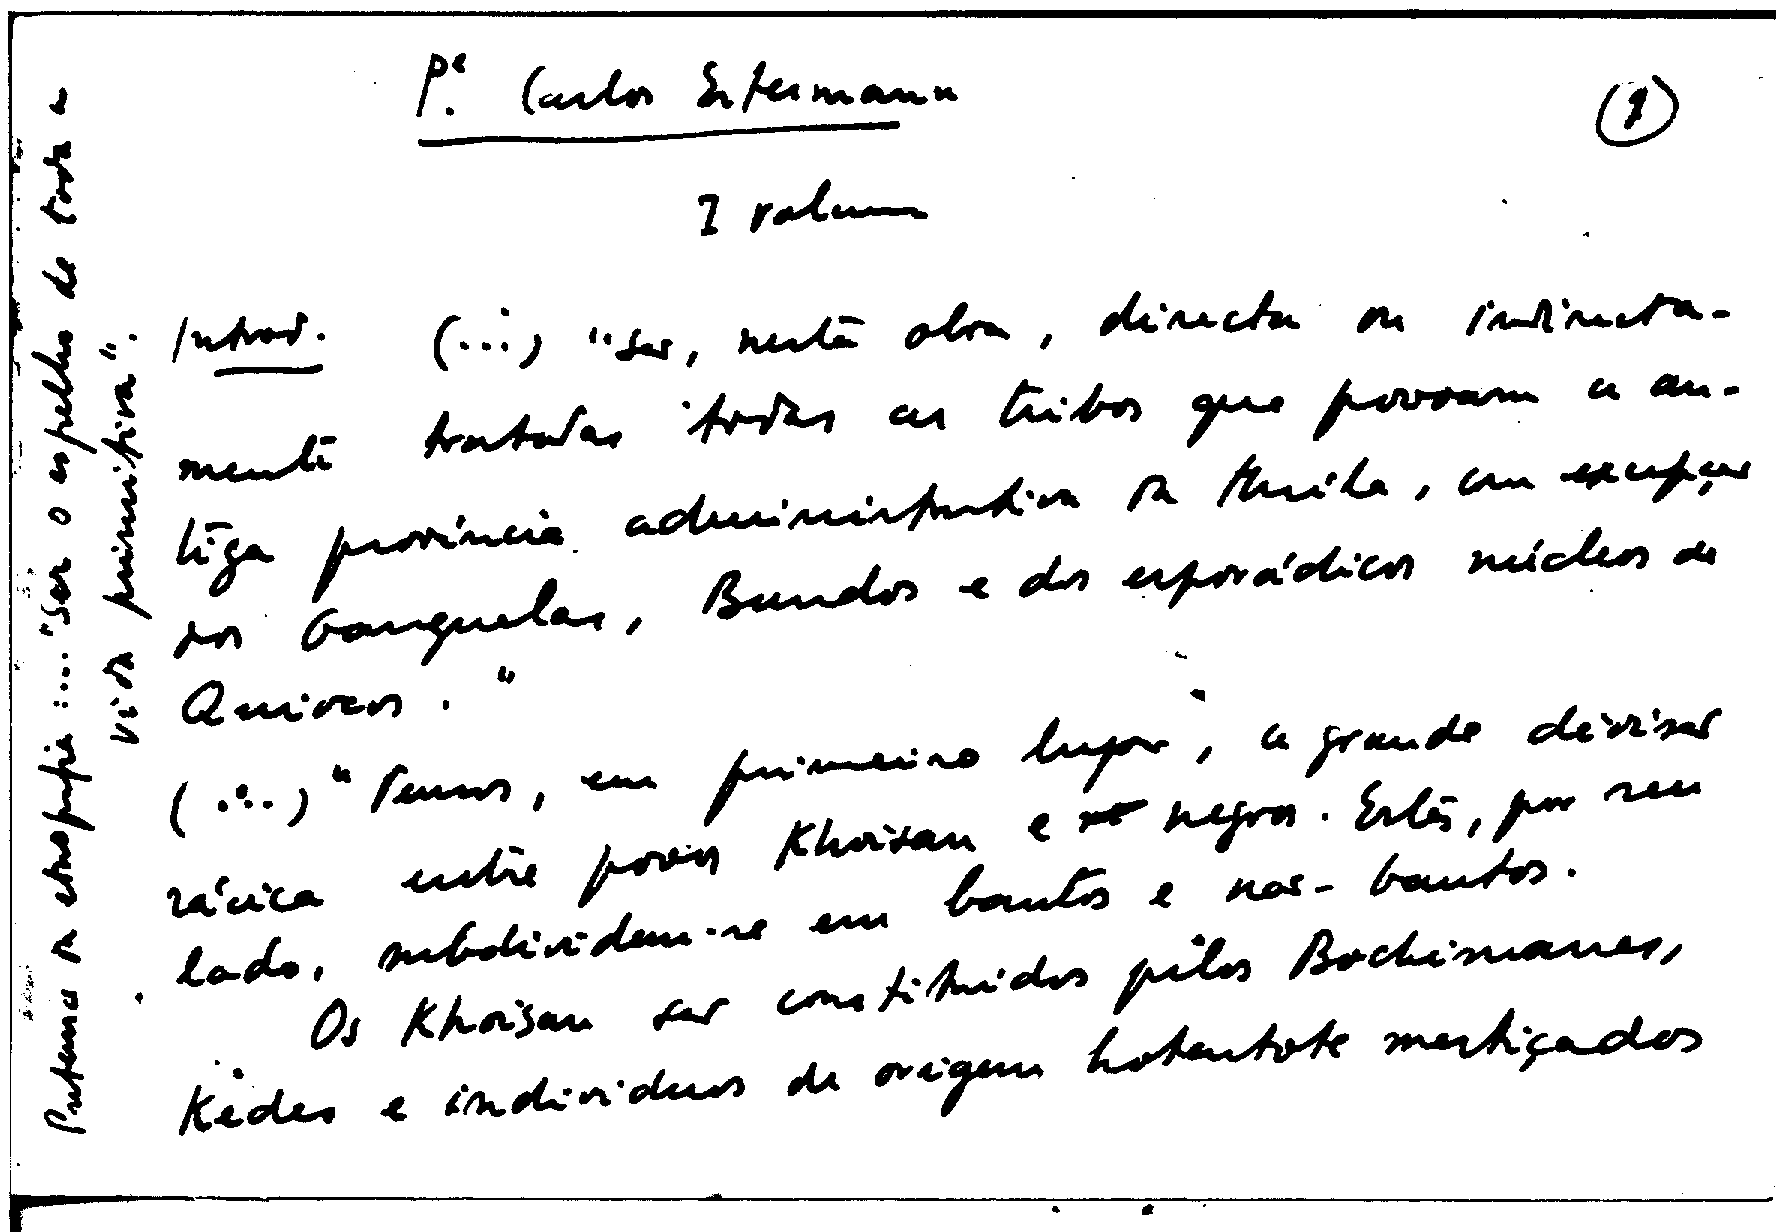 Pe. Carlos Estermann
1
I volume
Introd. (...) "são, nesta obra, directa ou indirecta-
mente tratadas todas as tribos que povoam a an-
tiga província administrativa da Huíla, com excepção
dos Ganguelas, Bundos e dos esporádicos núcleos de
Quiocos."
(...) "Temos, em primeiro lugar, a grande divisão
rácica entre povos Khoisan e negros. Estes, por seu
lado, subdividem-se em bantos e não-bantos.
Os Khoisan são constituídos pelos Bochimanes,
Kedes e indivíduos de origem hotentote mestiçados
da etnografia: ... "Ser o espelho de toda a
vida primitiva".